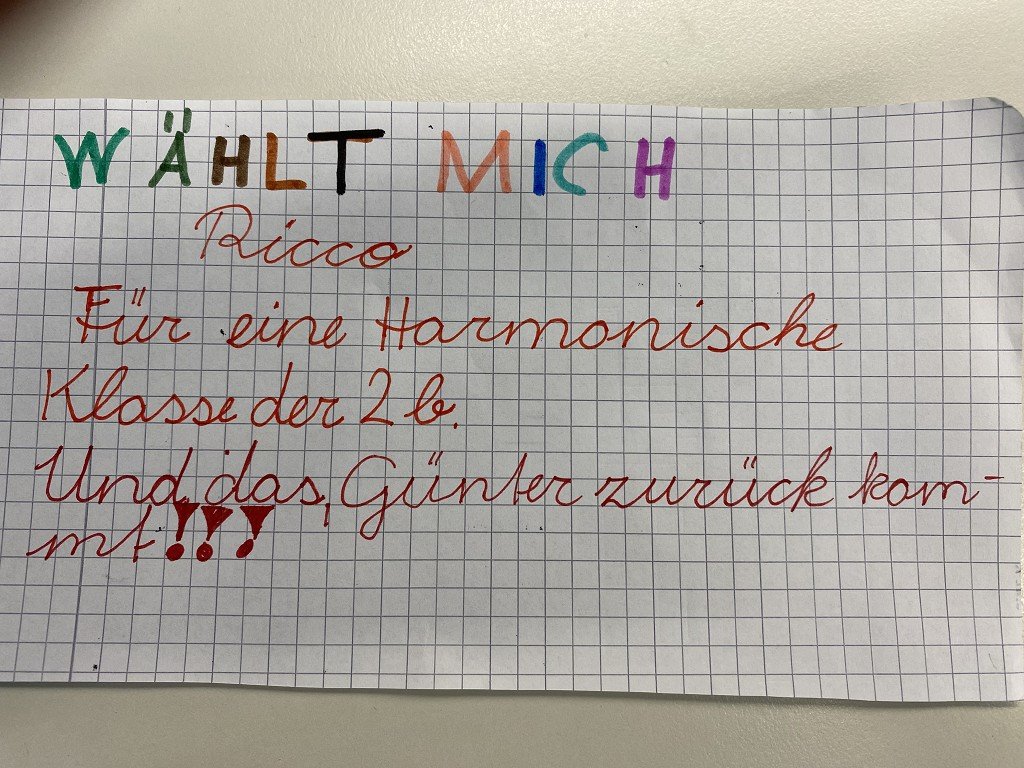 WÄHLT MICH
Ricco
Für eine Harmonische
Klasse der 2b.
Und das, Günter zurück kom-
mt!!!